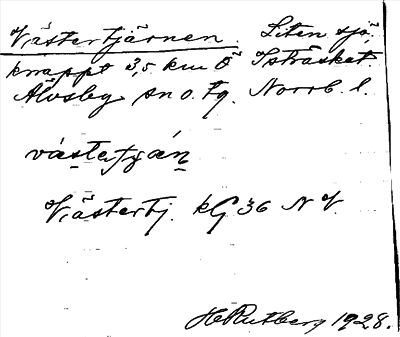 Västertjärnen. Liten sjö,
knappt 3,5 km Ö Isträsket.
Älvsby sn o. tg. Norrb. l.
västertjän
Västertj. kG 36 NV.
H Rutberg 1928.